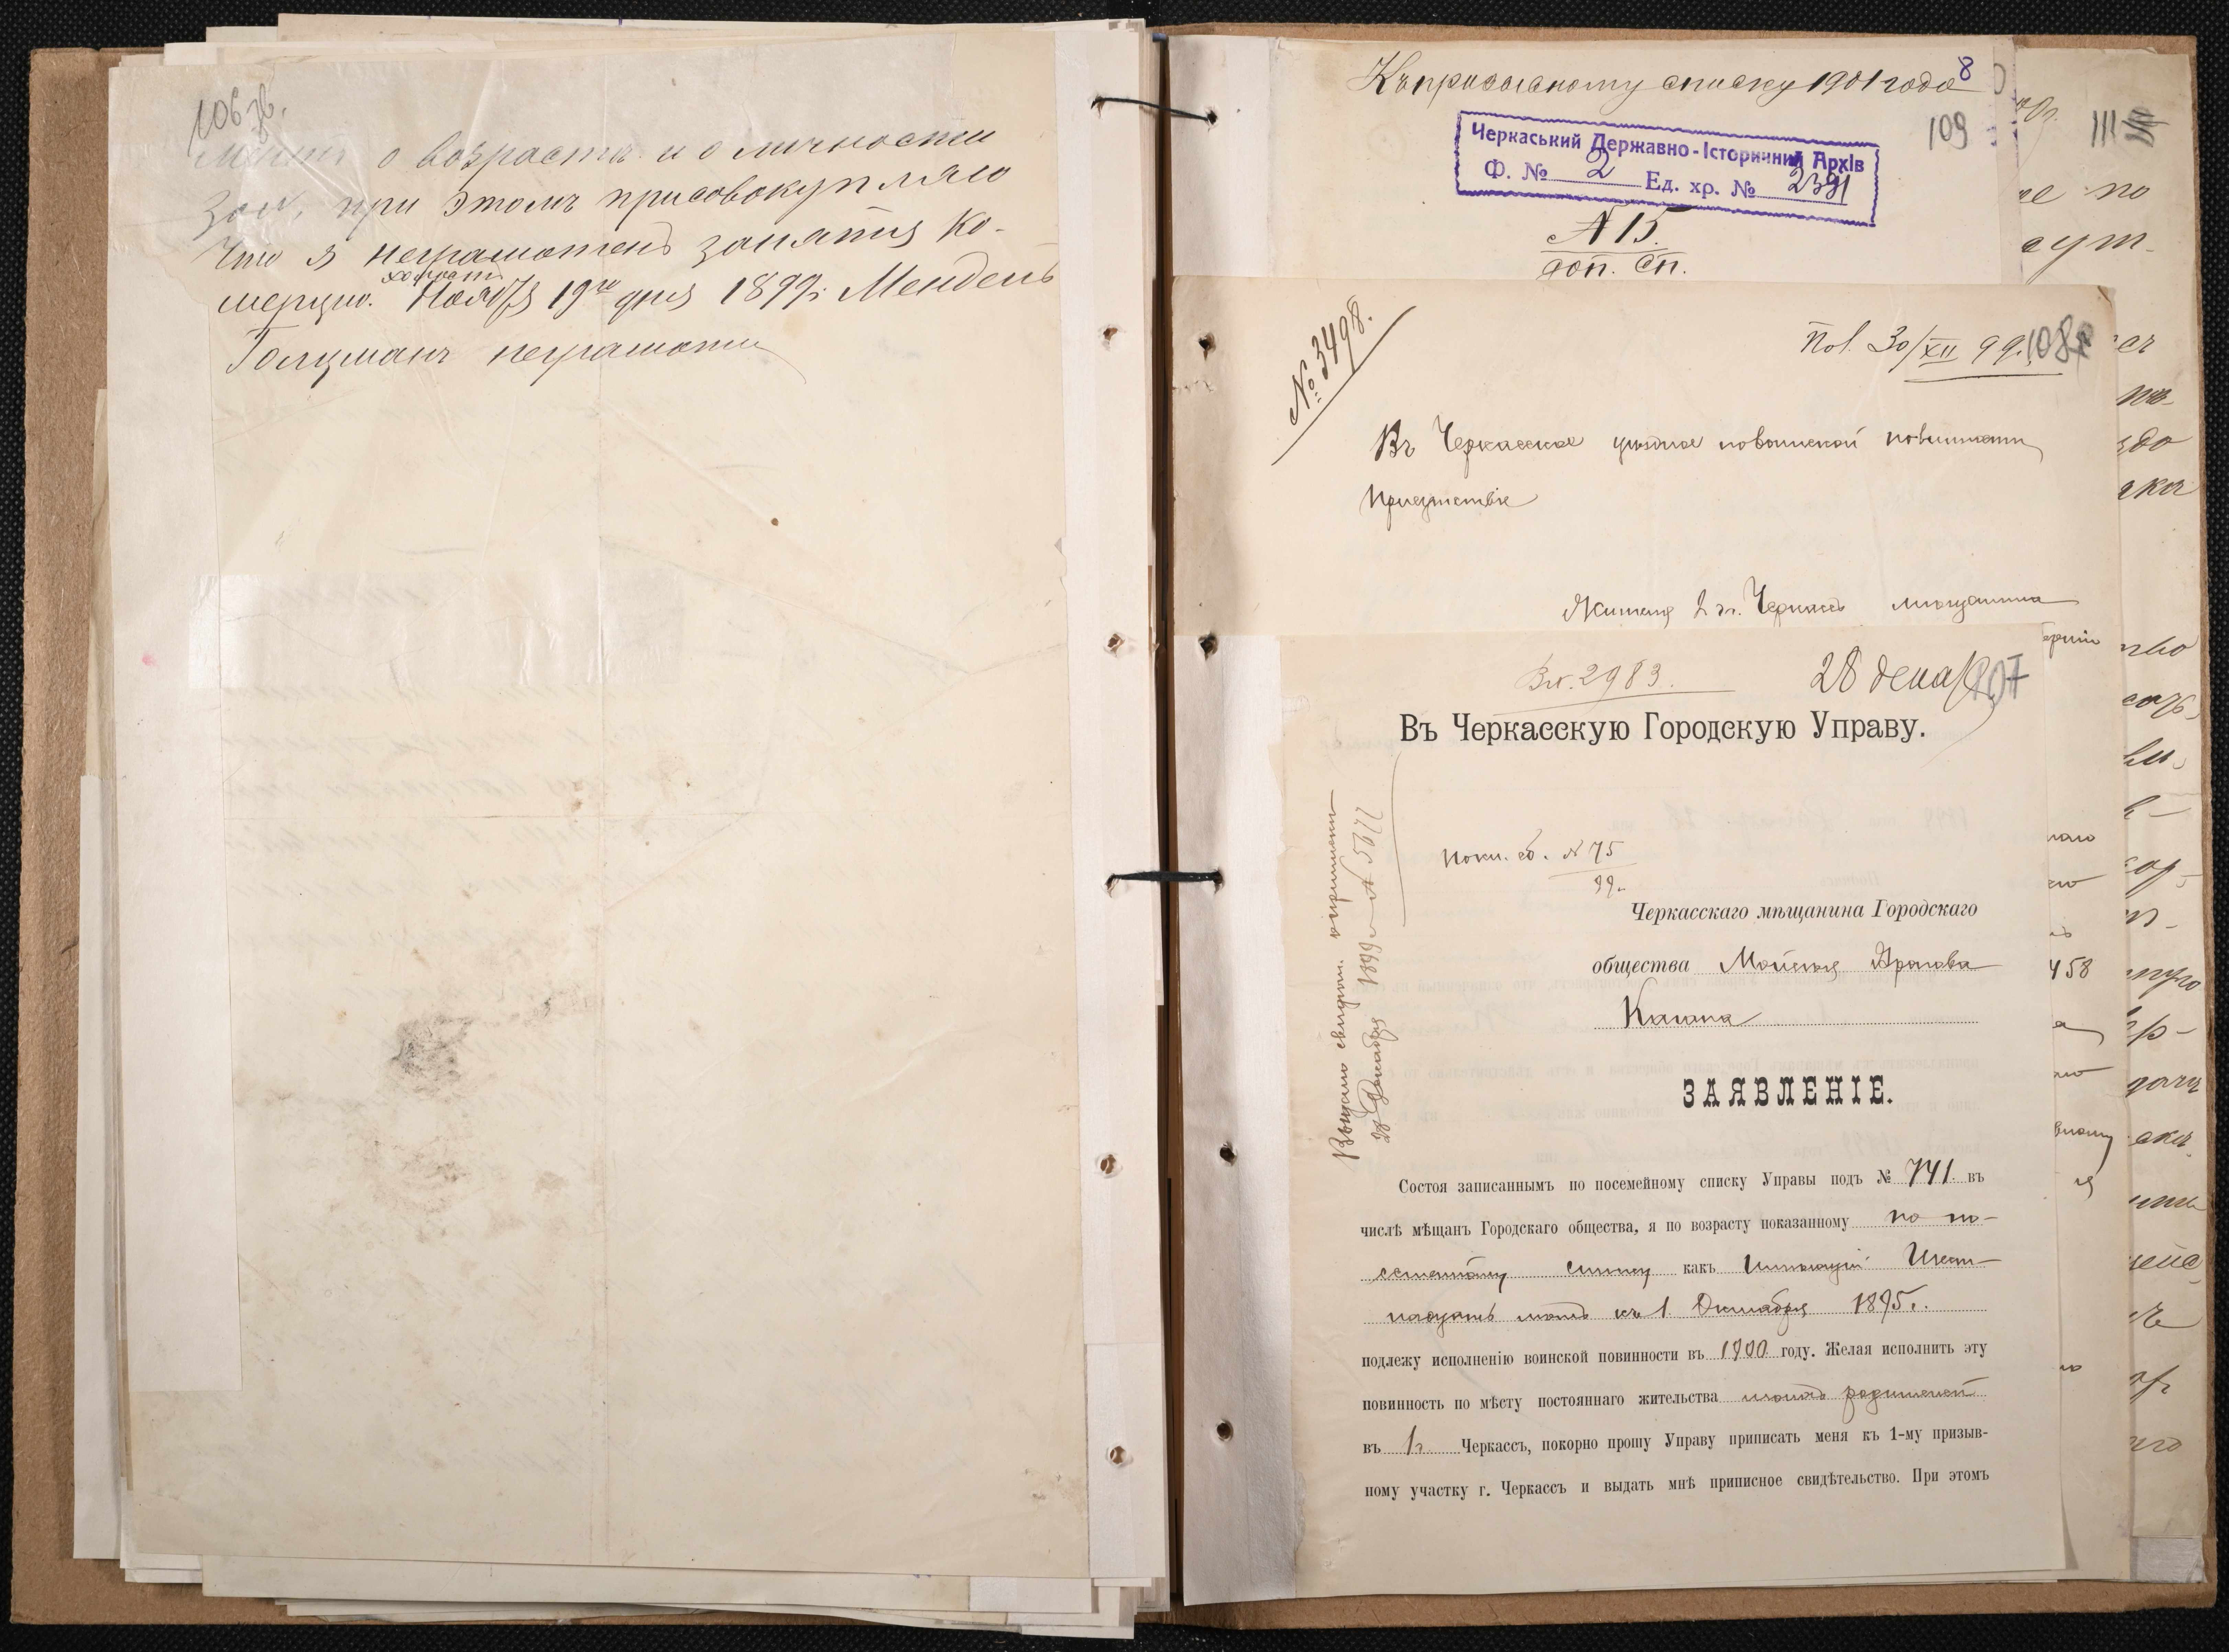 106 зв.
о возрасте и о личности
при этомъ присовокупляю
что я неграмотенъ занятия ко-
холостъ
мерцию. Ноября 19го дня 1899 г. Мендель
Голцманъ неграмотн
Къ призывному списку 1901 года
8
109
Черкаський Державно-Історичний Архів
Ф. № 2 Ед. хр. № 2391
N 15.
доп. сп.
111
№ 3498.
Пол. 30/XII 99 г. 108
Въ Черкасское уѣздное по воинской повинности
Присутствіе
Жителя г. Черкассъ мѣщанина
Вх. 2983.
28 дека
107
Въ Черкасскую Городскую Управу.
Выдано свидѣт. о приписки
28 Декабря 1899 г. N 5677
N 75
99 г.
Черкасскаго мѣщанина Городскаго
общества Мойсея Аронова
Кагана
ЗАЯВЛЕНІЕ.
Состоя записаннымъ по посемейному списку Управы подъ № 741 въ
числѣ мѣщанъ Городскаго общества, я по возрасту показанному по по-
семейному списку какъ имѣющій Шест-
надцать лѣтъ къ 1 Октября 1895 г.
подлежу исполненію воинской повинности въ 1900 году. Желая исполнить эту
повинность по мѣсту постояннаго жительства моихъ родителей
въ г. Черкассъ, покорно прошу Управу приписать меня къ 1-му призыв-
ному участку г. Черкассъ и выдать мнѣ приписное свидѣтельство. При этомъ
458